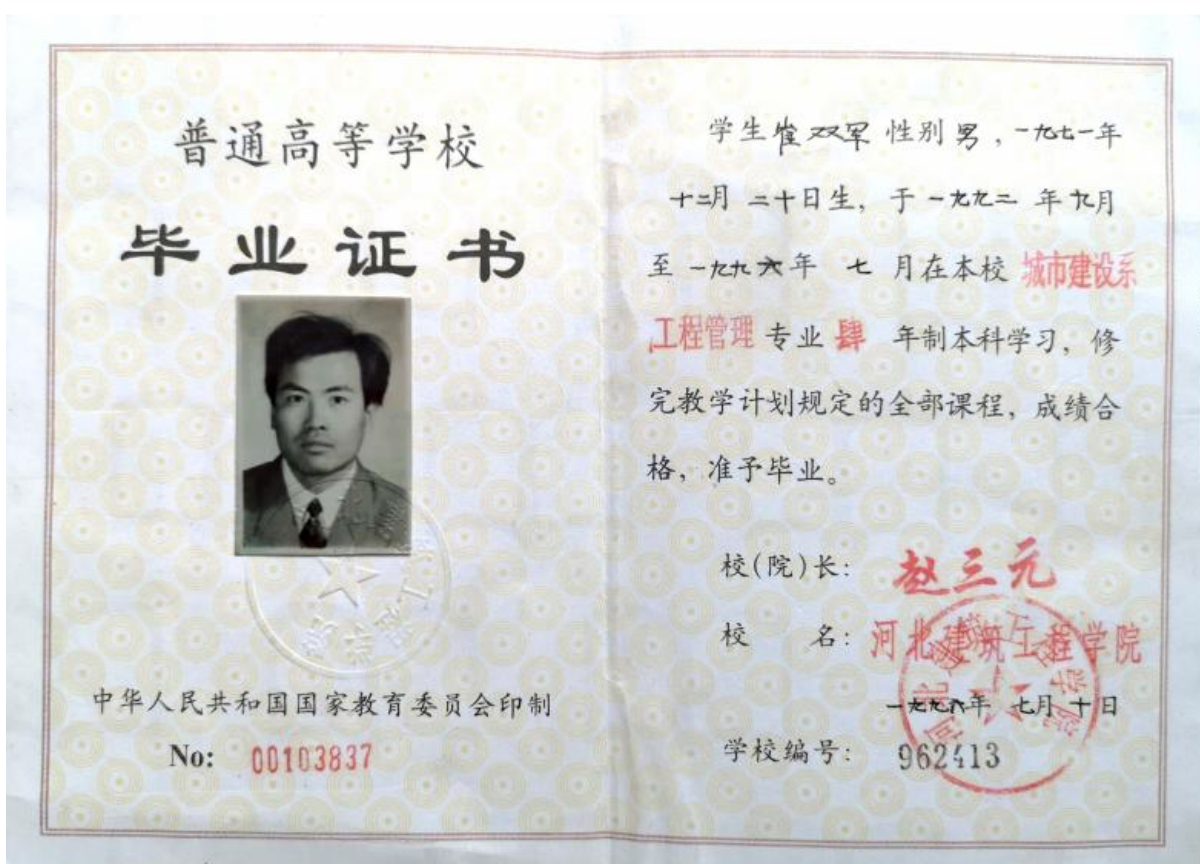 普通高等学校
毕业证书
中华人民共和国国家教育委员会印制
No: 00103837
学生崔双军 性别男，一九七一年
十二月二十日生，于一九九二年九月
至一九九六年七月在本校城市建设系
工程管理专业肆年制本科学习，修
完教学计划规定的全部课程，成绩合
格，准予毕业。
校(院)长：赵三元
校 名：河北建筑工程学院
一九九六年七月十日
学校编号：962413
河北建筑工程学院